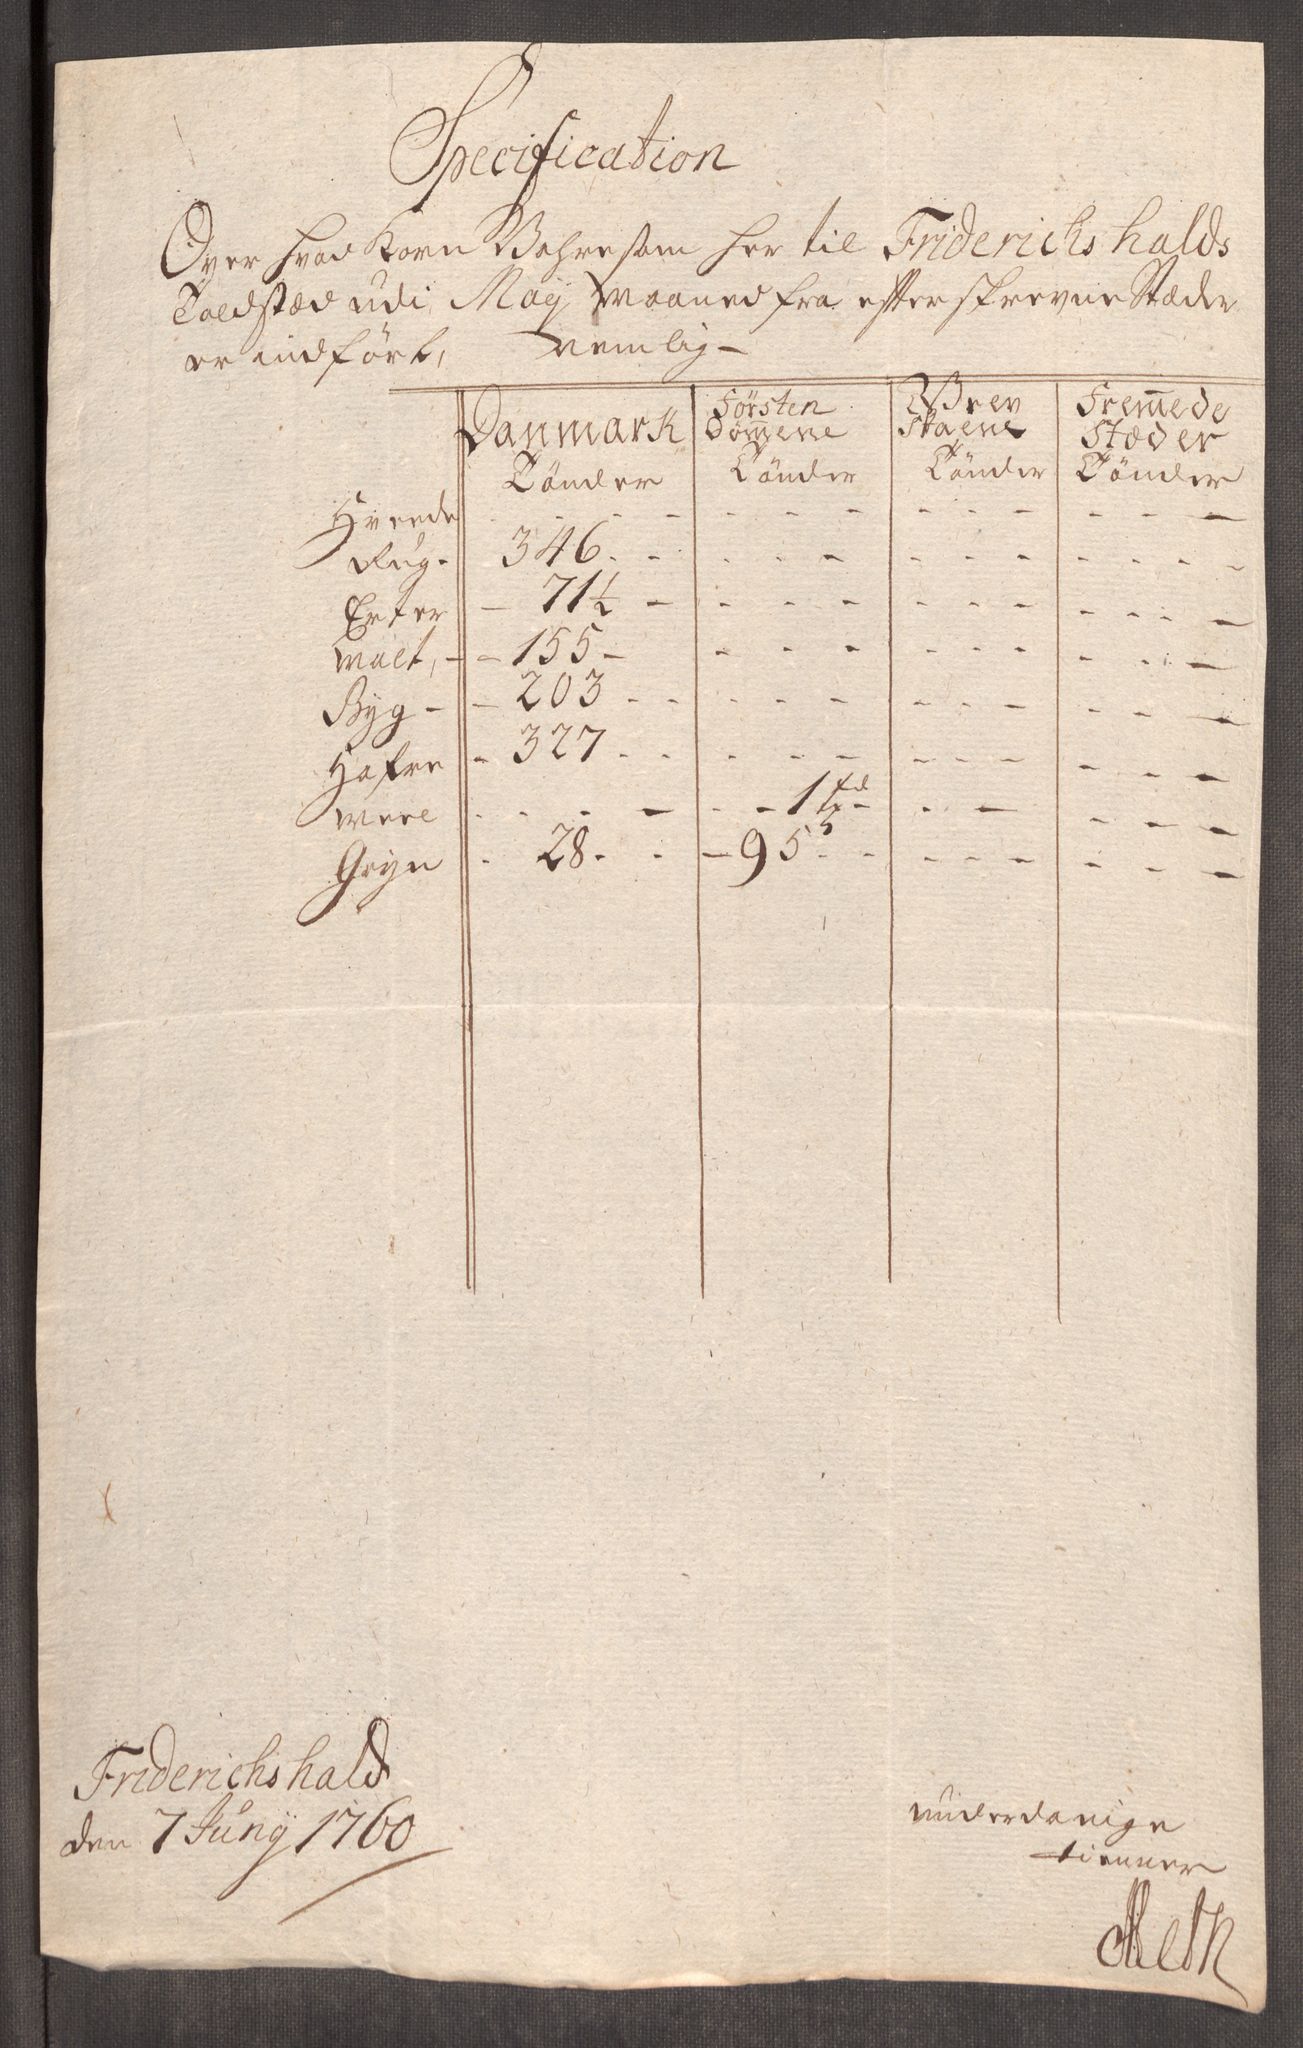 Specification
Over hvad Korn Wahre som her til Friderichshalds
Toldstæd udi Maÿ Maaned fra efterskrevne Stæder
er indført, nemlig -
Danmark Førsten dom̄ene Wrev Staene Frem̄ede Stæder
Tønder Tønder Tønder Tønder
Hveede - - - -
Rug - 346 - - -
Erter - 71½ - - -
Malt, - 155 - - -
Byg - 203 - - -
Hafre - 327 - - -
Meel - - 1 - -
Gryn - 28 - 95 - -
Friderichshald
den 7 Junÿ 1760
underdanige
tienner